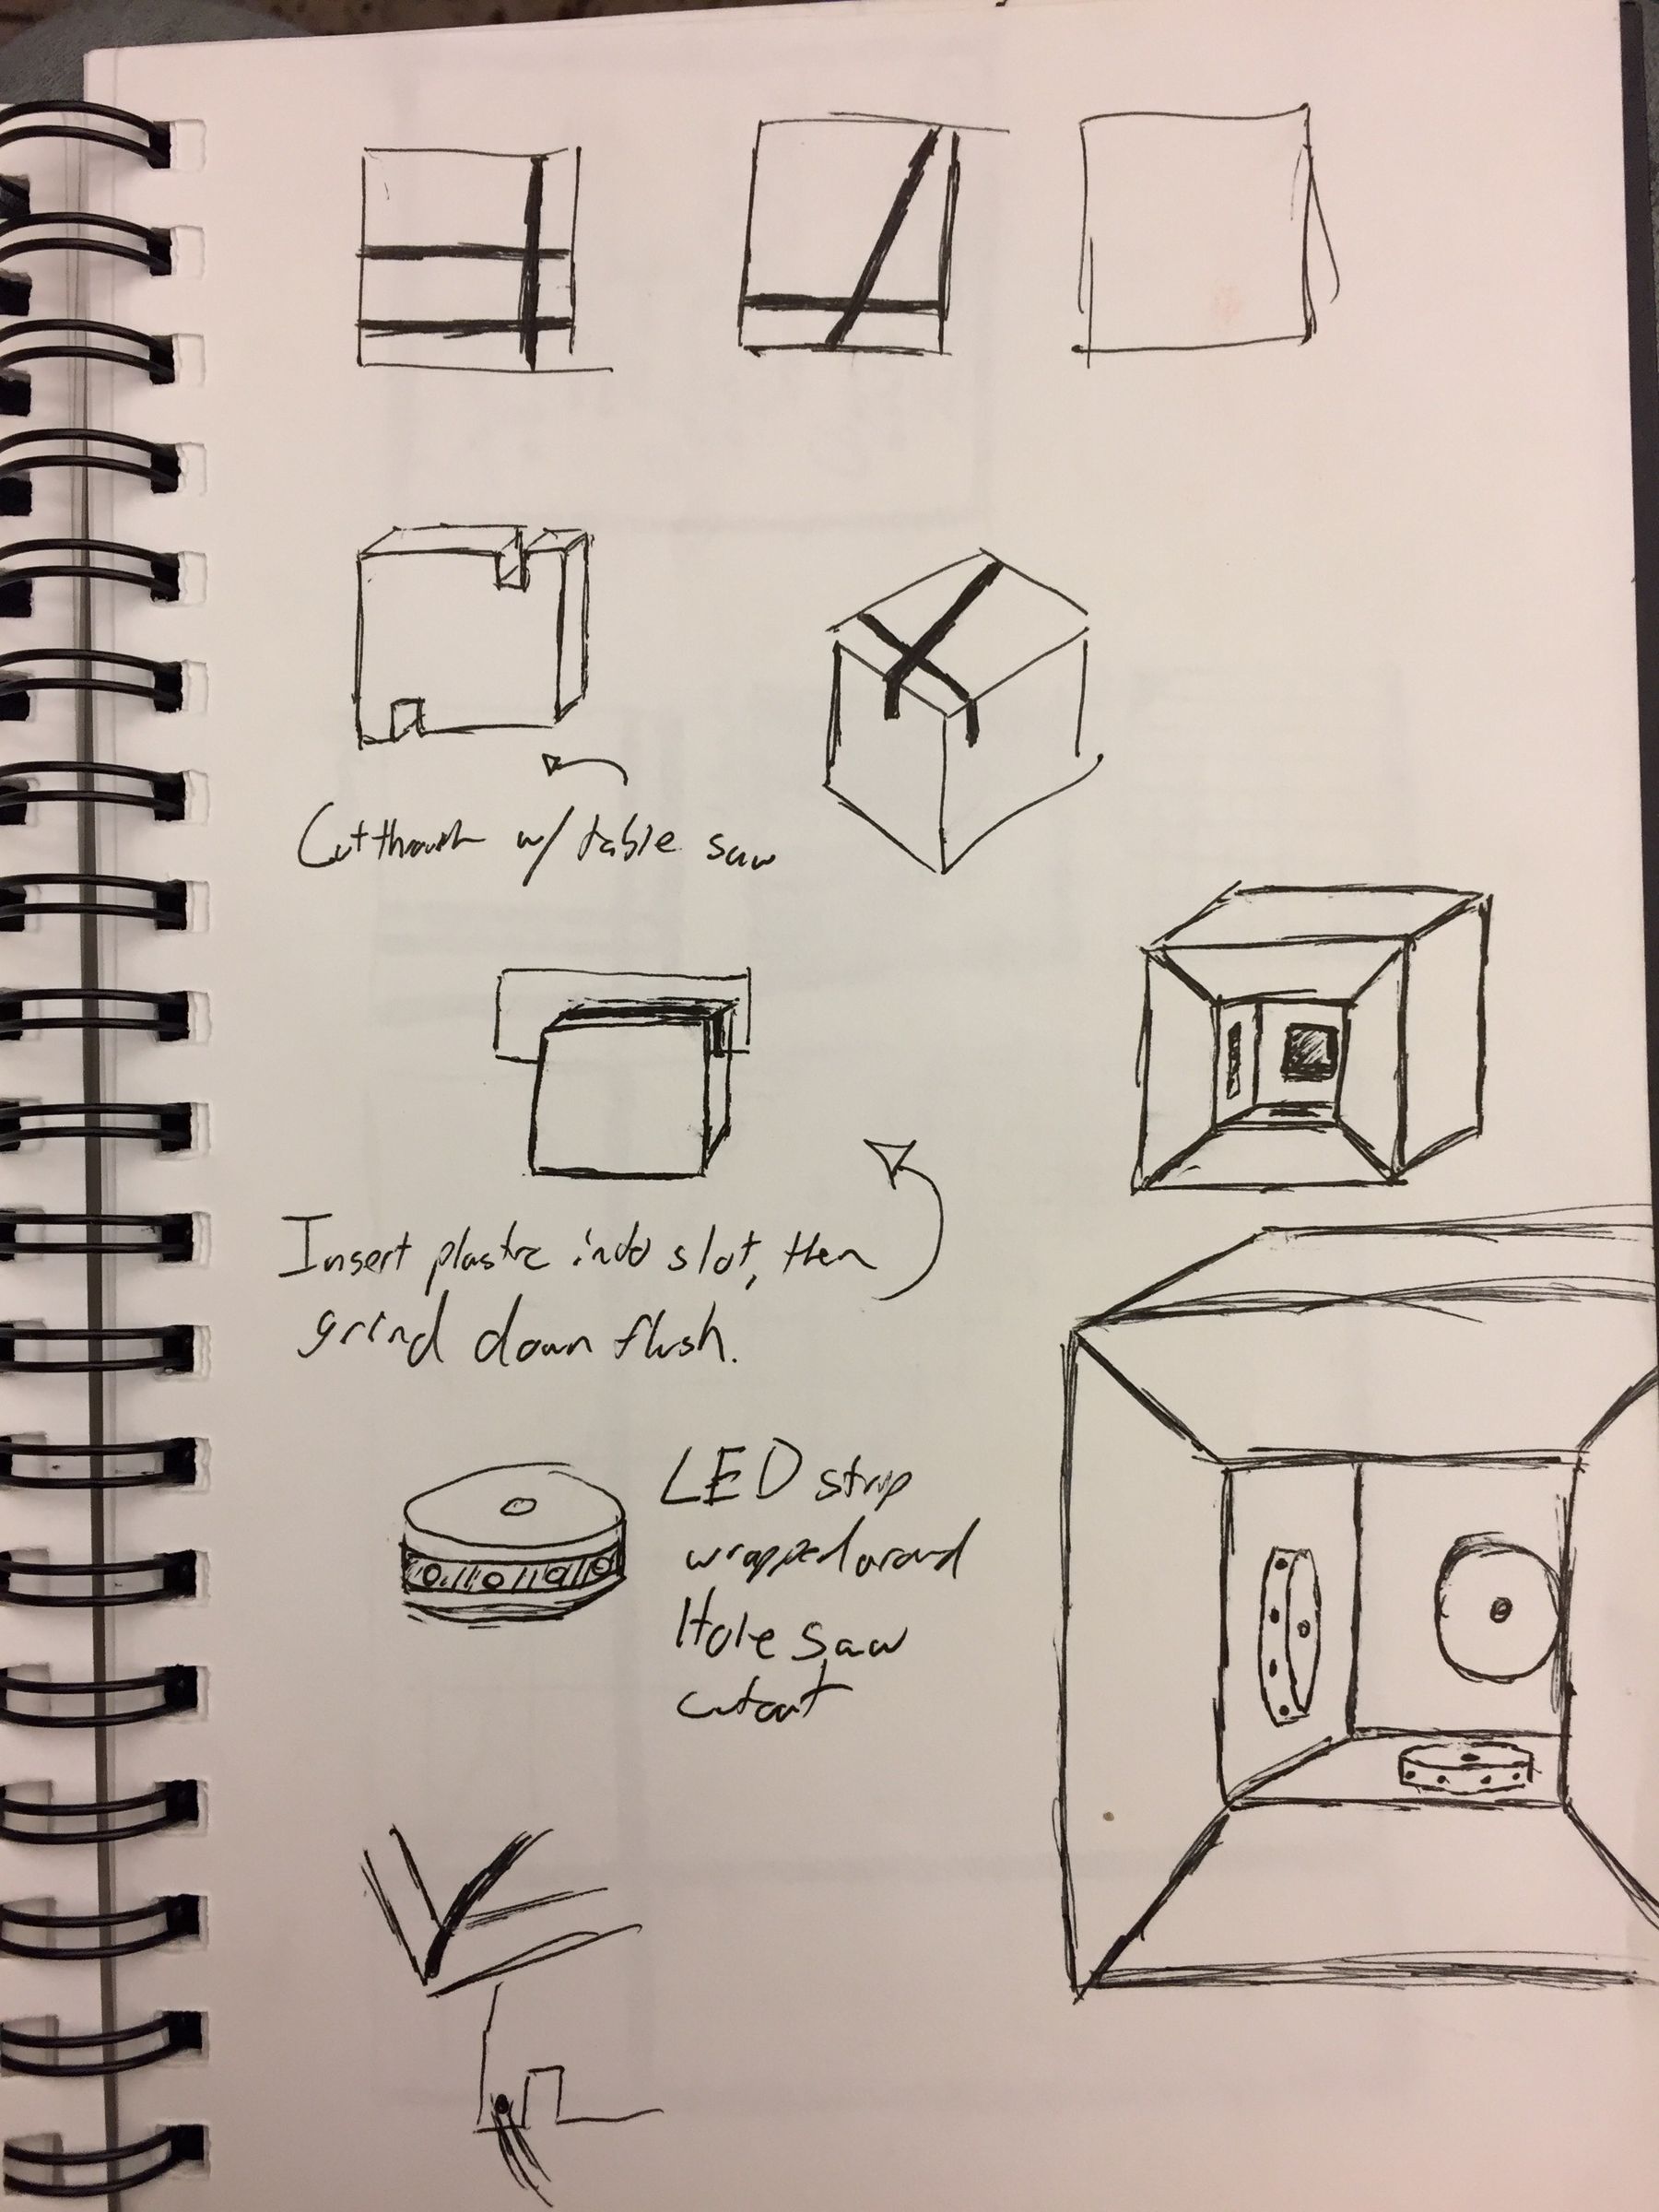 Cut through w/ table saw
Insert plastic into slot, then
grind down flush.
LED strip
wrapped around
Hole saw
cutout